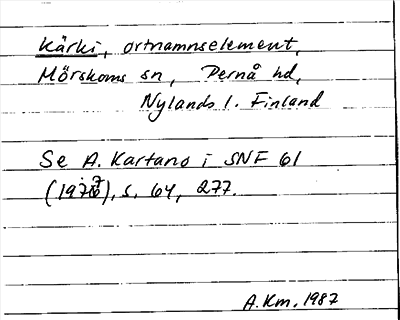 Kärki, ortnamnselement,
Mörskoms sn, Pernå hd,
Nylands l. Finland
Se A. Kartano i SNF 61
s. 64, 277.
A. Km. 1987